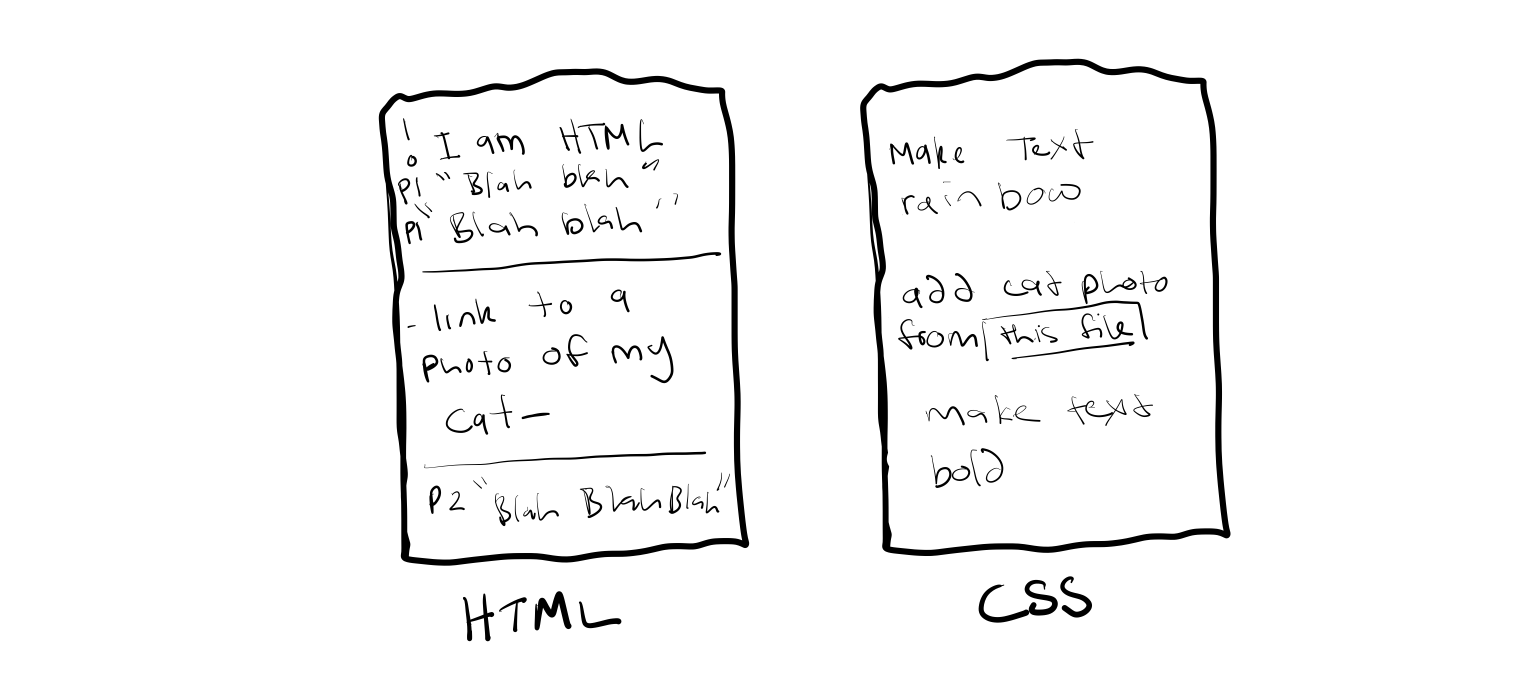 ! I am HTML
P1 "Blah blah"
P1 "Blah blah"
- link to a
photo of my
cat -
P2 "Blah Blah Blah"
HTML
Make Text
rainbow
add cat photo
from this file
make text
bold
CSS